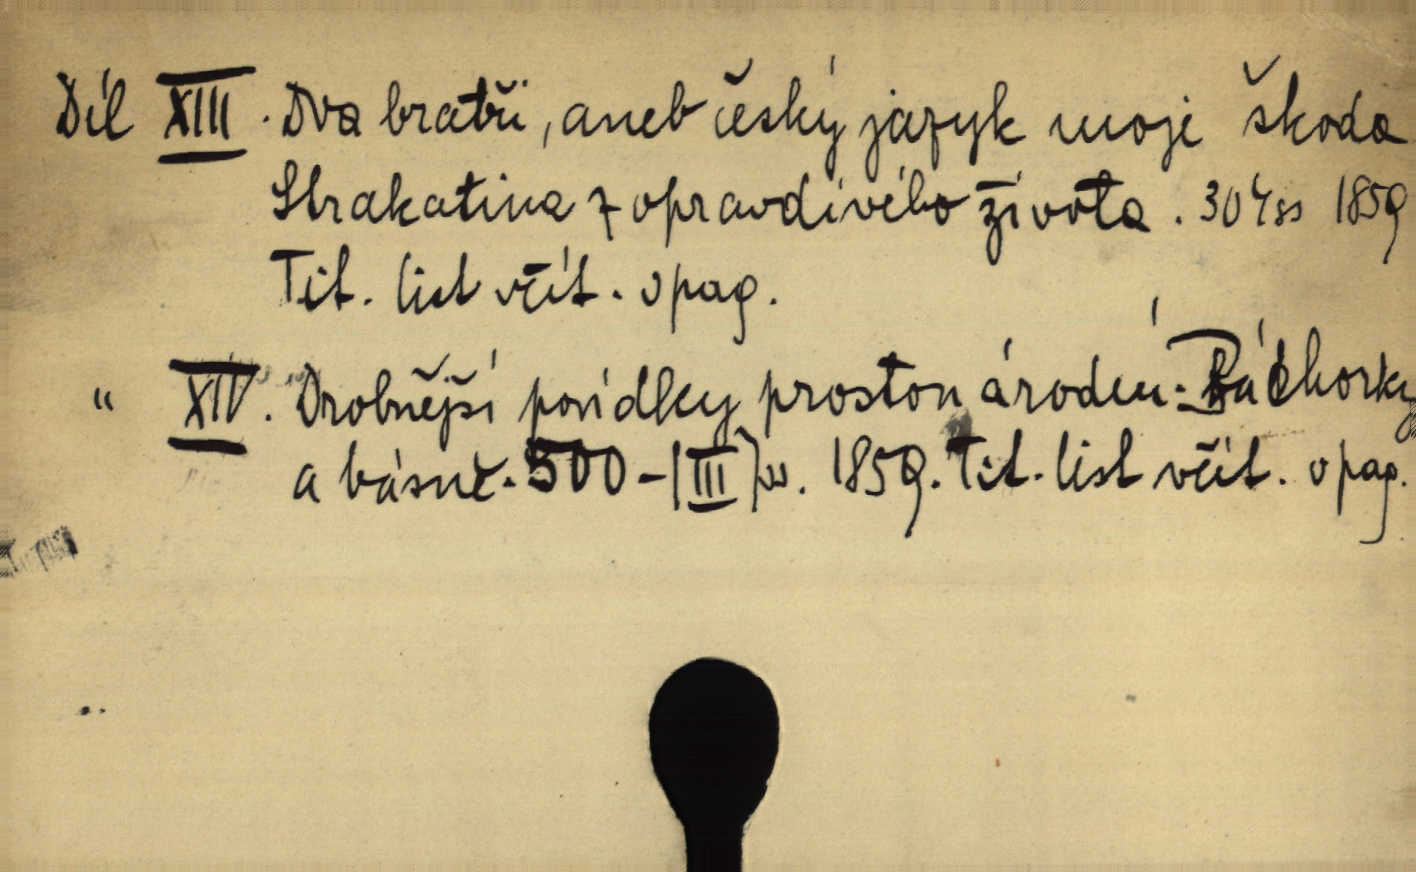 Díl XIII. Dva bratři, aneb český jazyk moje škoda
Strakatina z opravdivého života. 304 ss 1859
Tit. list včít. v pag.
" XIV. Drobnější povídky prostonárodní. Báchorky
a básně. 500-(III) ss. 1859. Tit. list včít. v pag.